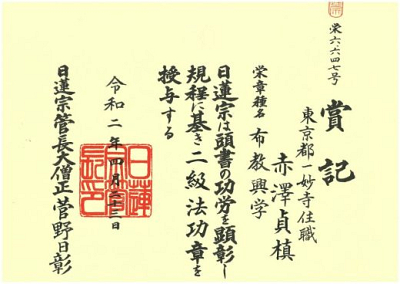 栄六六四七号
賞記
東京都一妙寺住職
赤澤貞槙
栄章種名 布教興学
日蓮宗は頭書の功労を顕彰し
規程に基き二級法功章を
授与する
令和二年四月二十三日
日蓮宗管長大僧正 菅野日彰